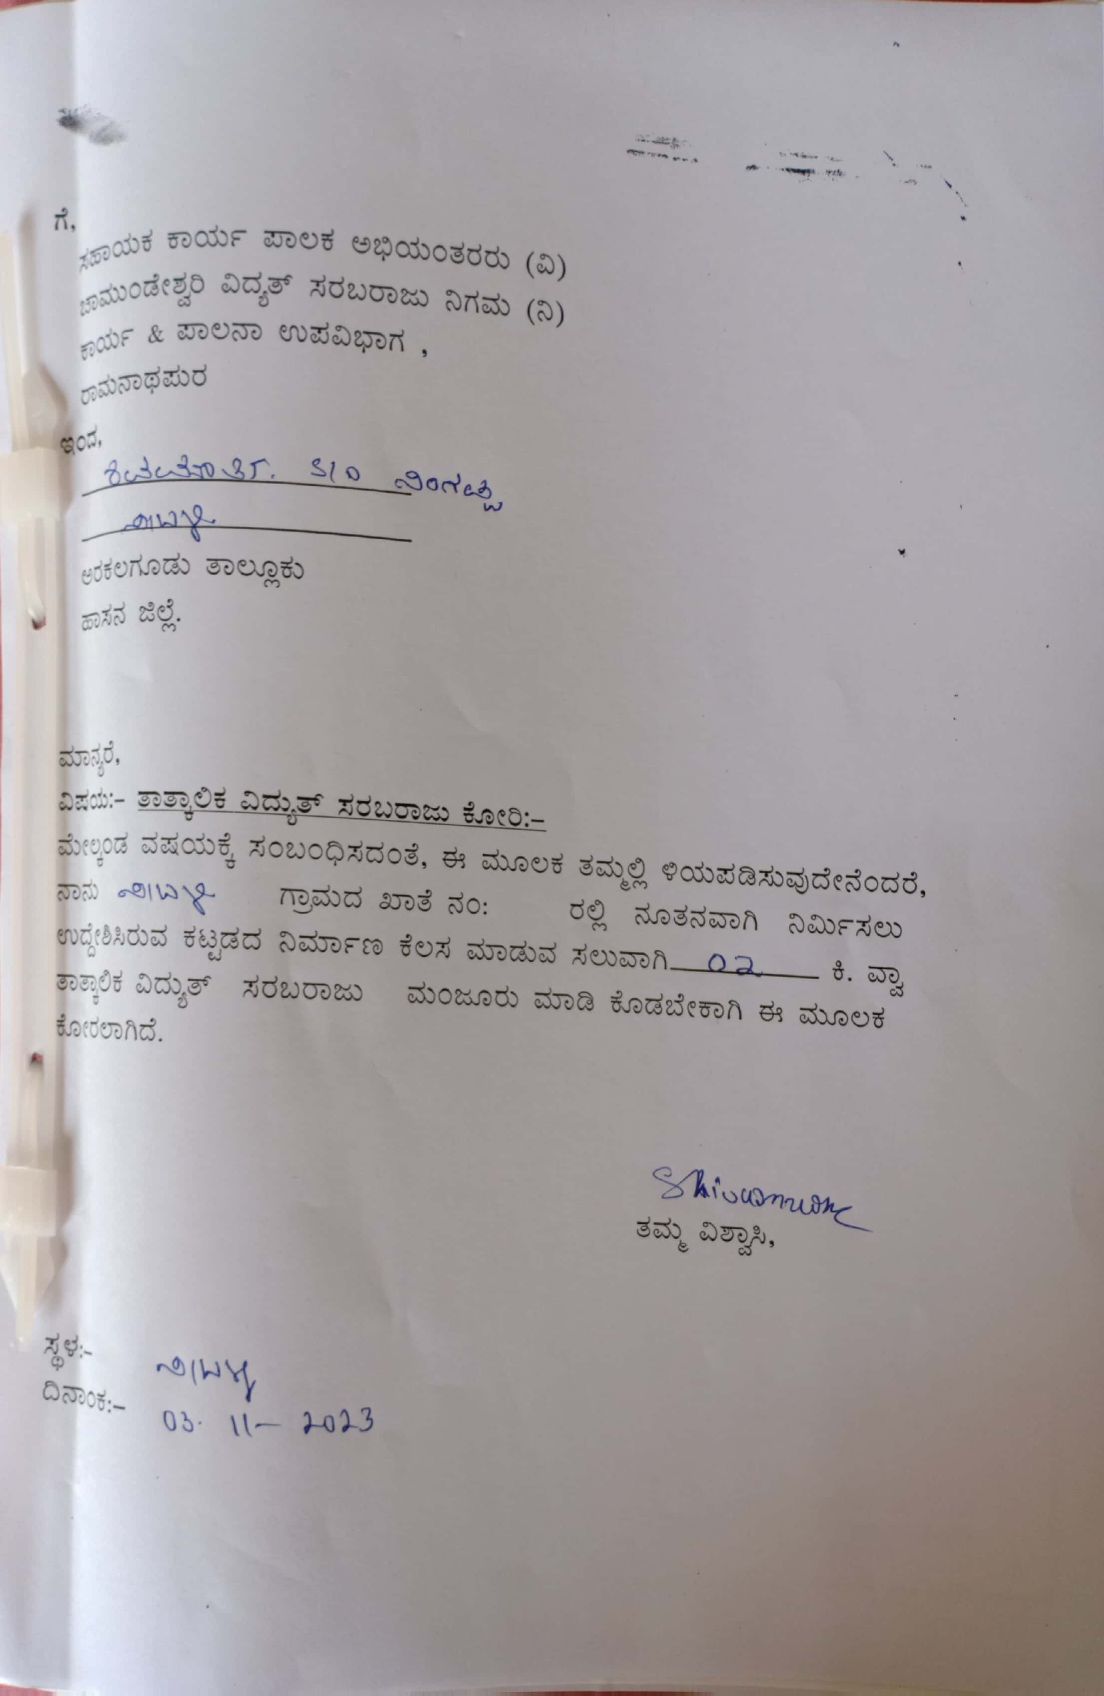 ಗೆ,
ಸಹಾಯಕ ಕಾರ್ಯ ಪಾಲಕ ಅಭಿಯಂತರರು (ವಿ)
ಚಾಮುಂಡೇಶ್ವರಿ ವಿದ್ಯತ್ ಸರಬರಾಜು ನಿಗಮ (ನಿ)
ಕಾರ್ಯ & ಪಾಲನಾ ಉಪವಿಭಾಗ ,
ರಾಮನಾಥಪುರ
ಇಂದ,
S/O ನಿಂಗಪ್ಪ
ಅರಕಲಗೂಡು ತಾಲ್ಲೂಕು
ಹಾಸನ ಜಿಲ್ಲೆ.
ಮಾನ್ಯರೆ,
ವಿಷಯ:- ತಾತ್ಕಾಲಿಕ ವಿದ್ಯುತ್ ಸರಬರಾಜು ಕೋರಿ:-
ಮೇಲ್ಕಂಡ ವಷಯಕ್ಕೆ ಸಂಬಂಧಿಸದಂತೆ, ಈ ಮೂಲಕ ತಮ್ಮಲ್ಲಿ ಳಿಯಪಡಿಸುವುದೇನೆಂದರೆ,
ನಾನು ಗ್ರಾಮದ ಖಾತೆ ನಂ: ರಲ್ಲಿ ನೂತನವಾಗಿ ನಿರ್ಮಿಸಲು
ಉದ್ದೇಶಿಸಿರುವ ಕಟ್ಟಡದ ನಿರ್ಮಾಣ ಕೆಲಸ ಮಾಡುವ ಸಲುವಾಗಿ 02 ಕಿ. ವ್ವಾ
ತಾತ್ಕಾಲಿಕ ವಿದ್ಯುತ್ ಸರಬರಾಜು ಮಂಜೂರು ಮಾಡಿ ಕೊಡಬೇಕಾಗಿ ಈ ಮೂಲಕ
ಕೋರಲಾಗಿದೆ.
ತಮ್ಮ ವಿಶ್ವಾಸಿ,
ಸ್ಥಳ:-
ದಿನಾಂಕ:- 03-11-2023